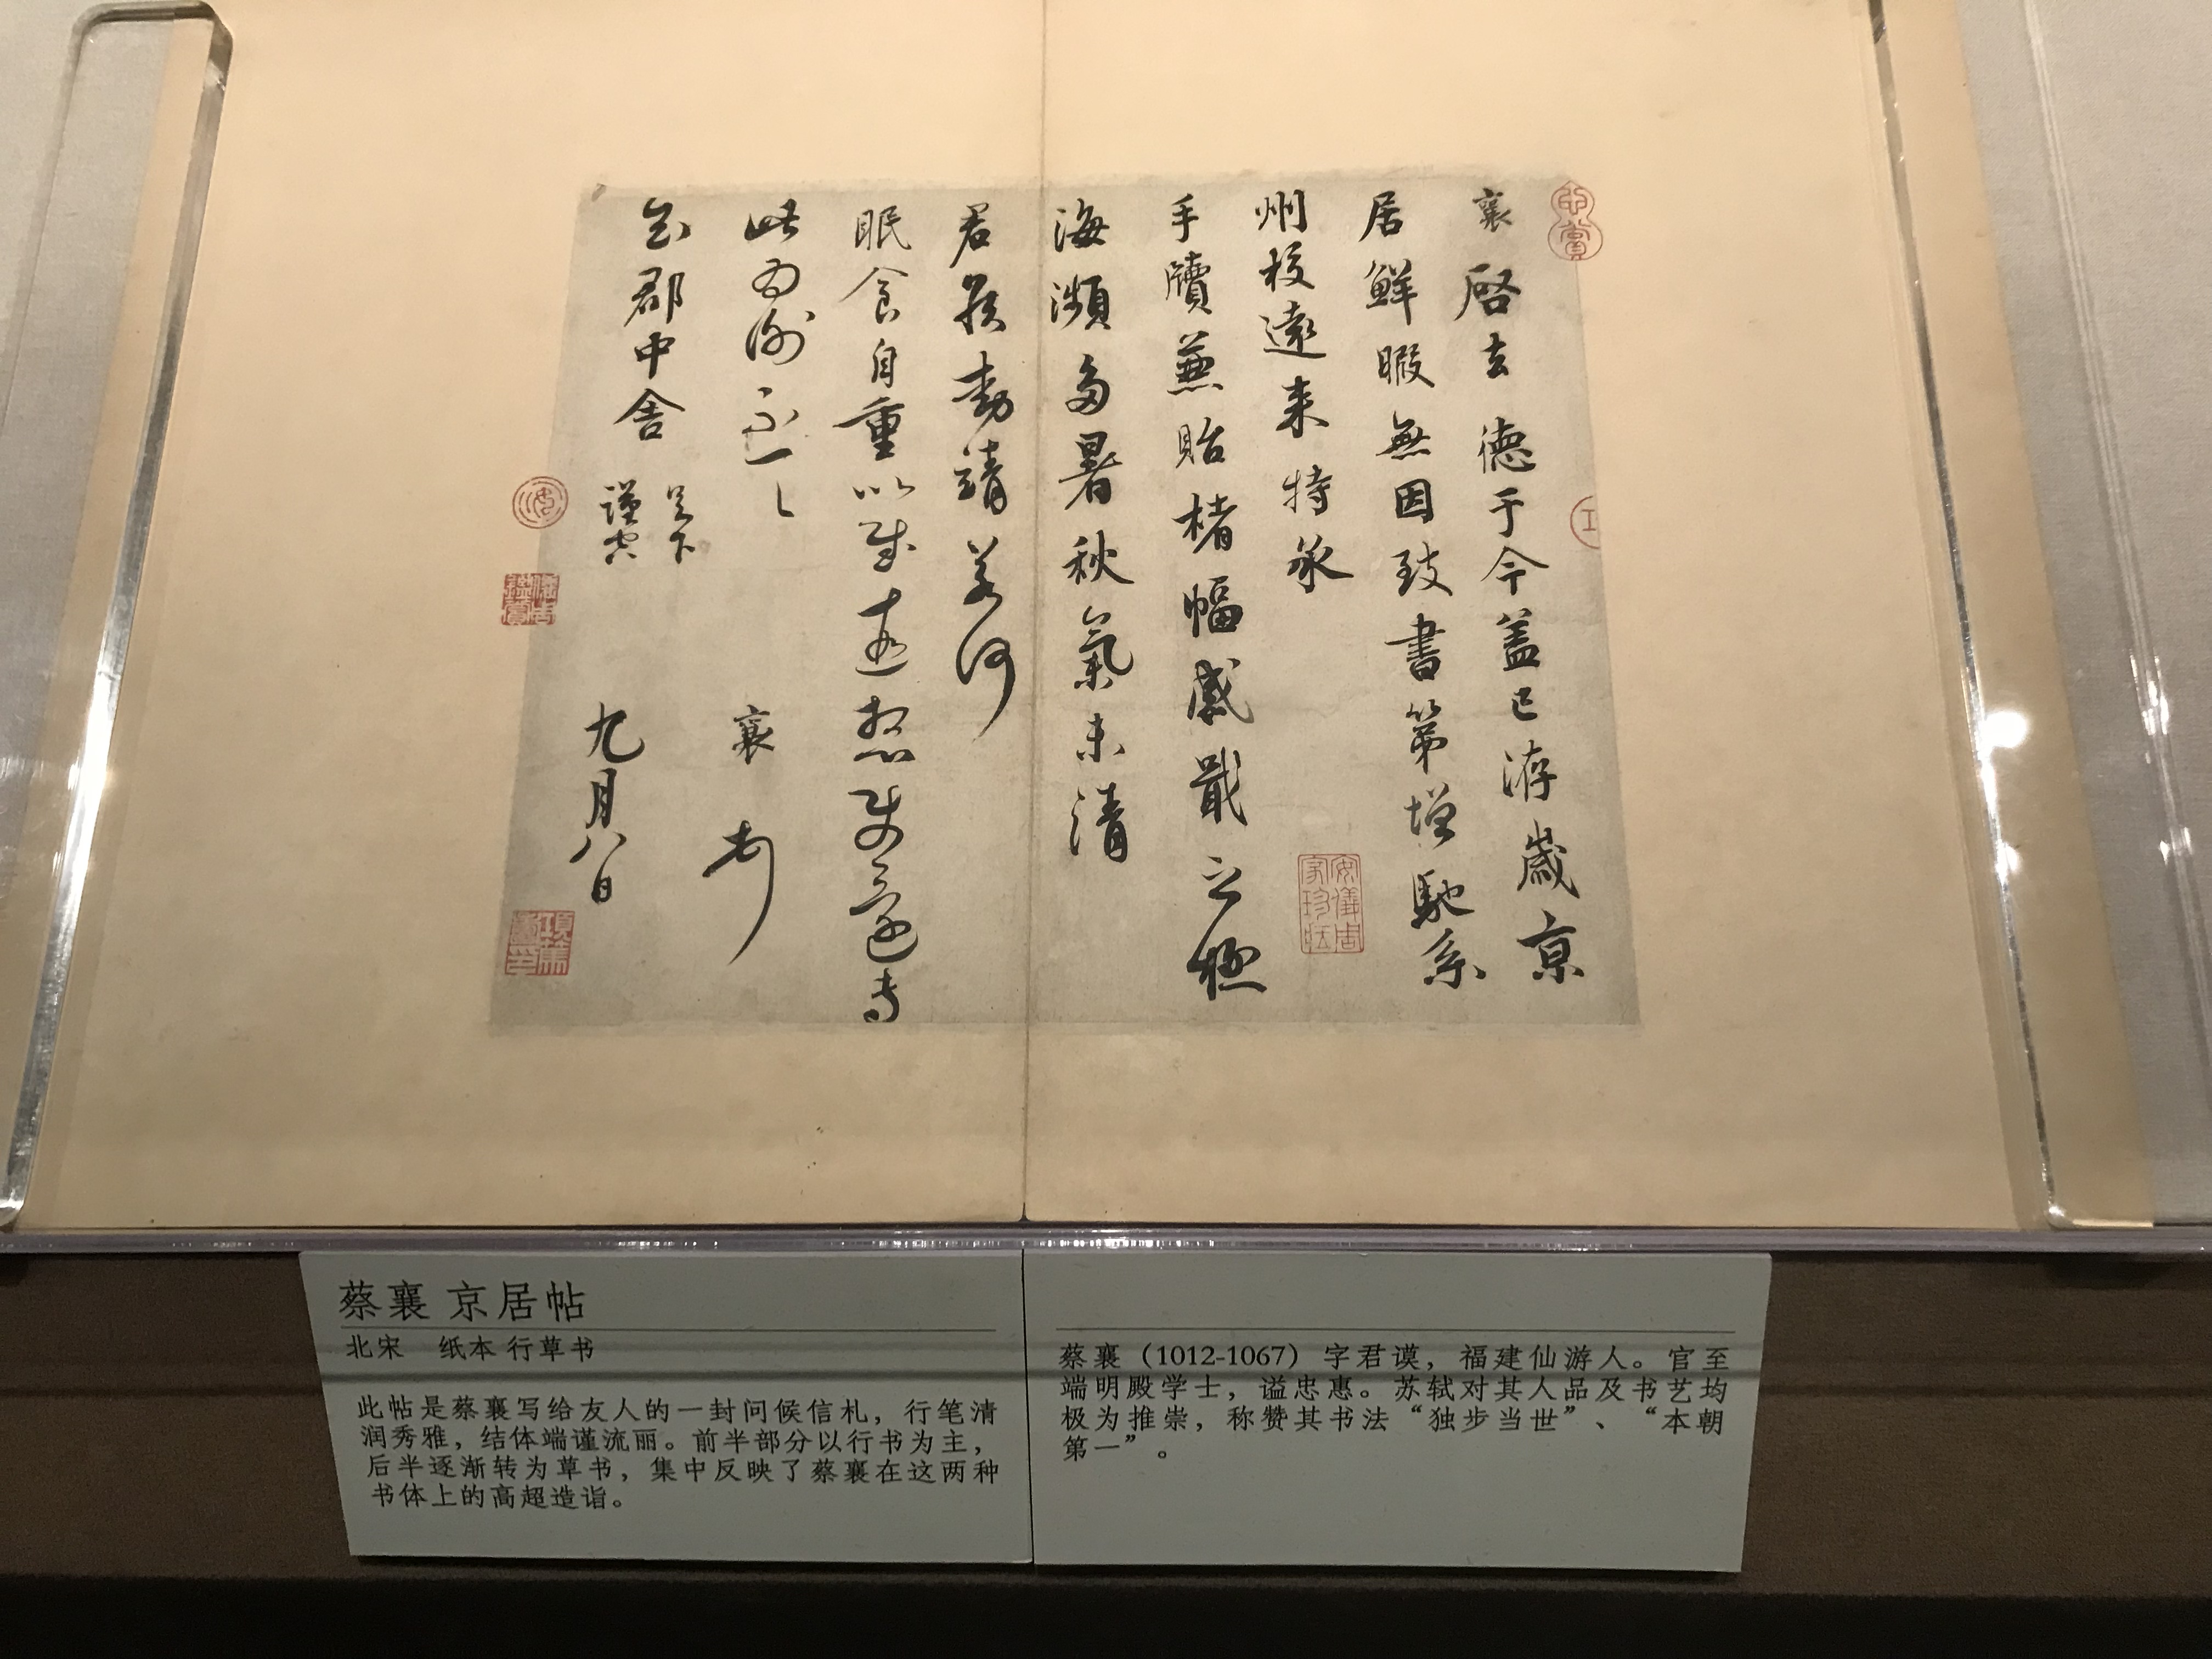 襄啓去德于今蓋已洊歲京
居鮮暇無因致書第增馳系
州校遠来特承
手牘兼貽楮幅感戢之極
海瀕多暑秋氣未清
君侯動靖若何
眠食自重以慰遠想
此
郡中舍
足下
謹空
襄
九月八日
安儀周
家珍藏
蔡襄 京居帖
北宋 纸本 行草书
此帖是蔡襄写给友人的一封问候信札，行笔清
润秀雅，结体端谨流丽。前半部分以行书为主，
后半逐渐转为草书，集中反映了蔡襄在这两种
书体上的高超造诣。
蔡襄（1012-1067）字君谟，福建仙游人。官至
端明殿学士，谥忠惠。苏轼对其人品及书艺均
极为推崇，称赞其书法“独步当世”、“本朝
第一”。